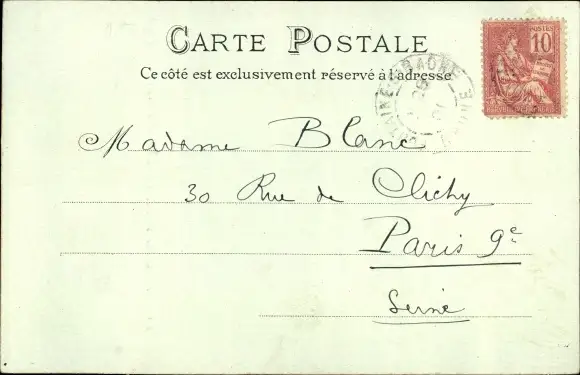 CARTE POSTALE
Ce côté est exclusivement réservé à l'adresse
POSTES
10
Madame Blanc
30 Rue de Clichy
Paris 9e
Seine